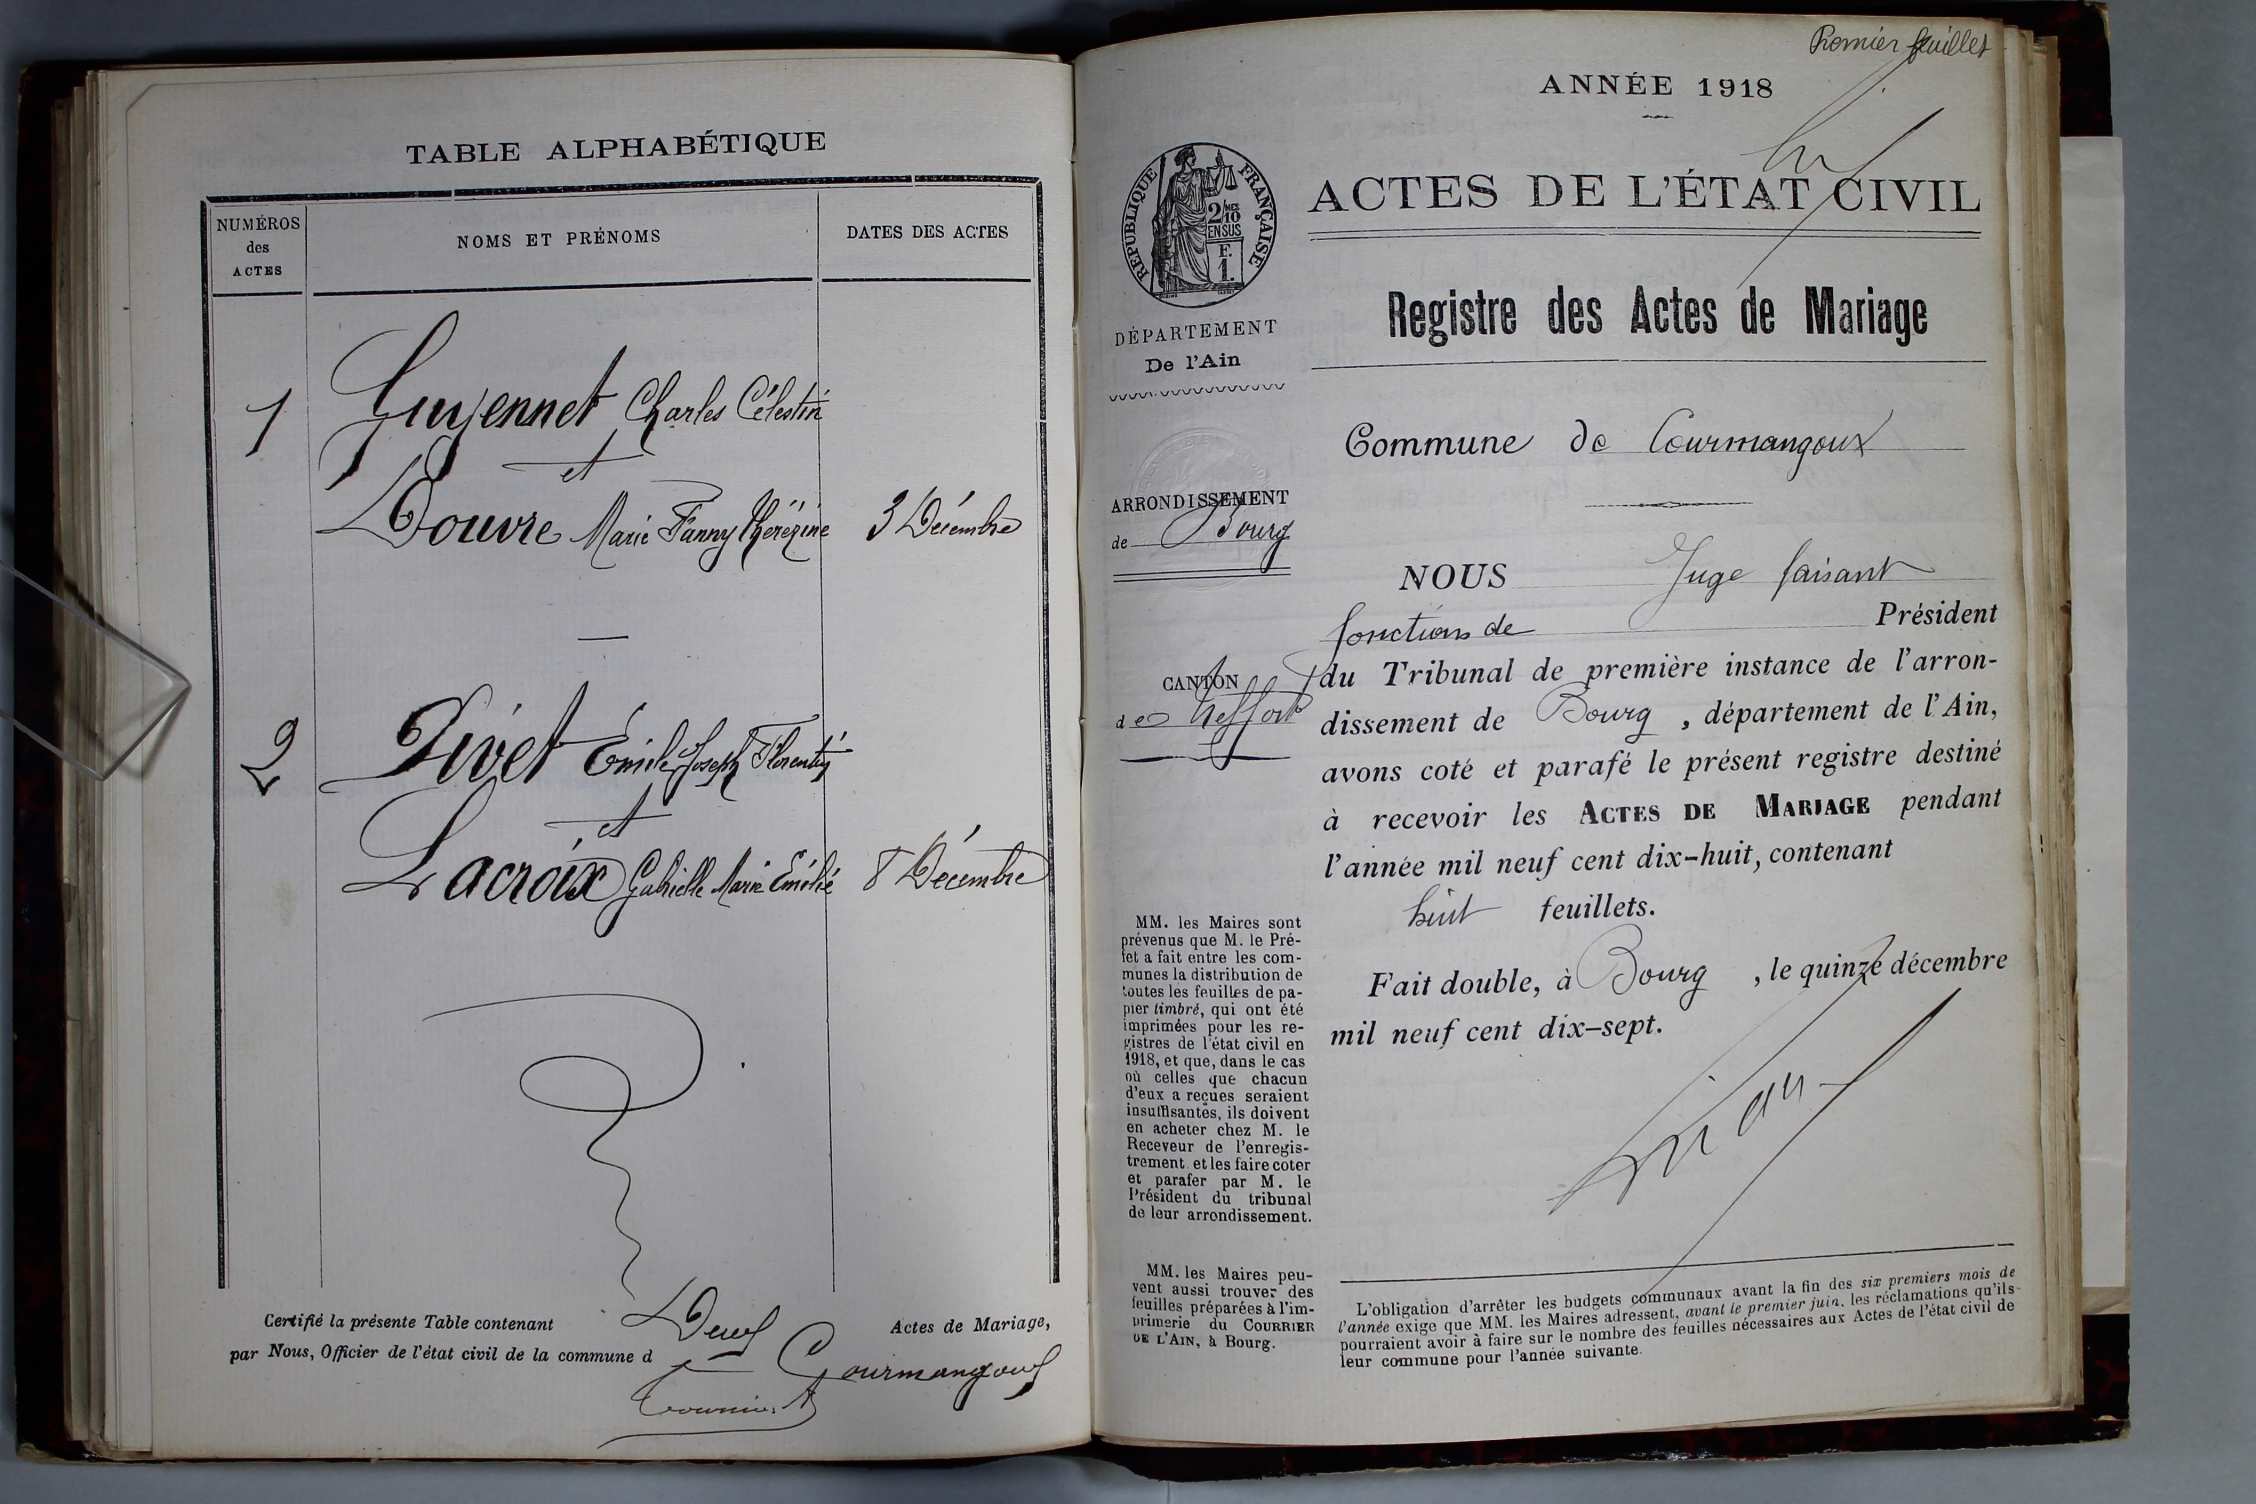 TABLE ALPHABÉTIQUE
NUMÉROS
des
ACTES
NOMS ET PRÉNOMS
DATES DES ACTES
1
Guyennet Charles Célestin
et
Douvre Marie Fanny Thérézine 3 Décembre
2
Pivet Émile Joseph Florentin
et
Lacroix Gabrielle Marie Emélie 8 Décembre
Certifié la présente Table contenant Deux Actes de Mariage,
par Nous, Officier de l'état civil de la commune d Courmangoux
Premier feuillet
ANNÉE 1918
ACTES DE L'ÉTAT CIVIL
Registre des Actes de Mariage
RÉPUBLIQUE FRANÇAISE
2/10
EN SUS
F.
1.
DÉPARTEMENT
De l'Ain
ARRONDISSEMENT
de Bourg
CANTON
de Treffort
MM. les Maires sont
prévenus que M. le Pré-
fet a fait entre les com-
munes la distribution de
toutes les feuilles de pa-
pier timbré, qui ont été
imprimées pour les re-
gistres de l'état civil en
1918, et que, dans le cas
où celles que chacun
d'eux a reçues seraient
insuffisantes, ils doivent
en acheter chez M. le
Receveur de l'enregis-
trement et les faire coter
et parafer par M. le
Président du tribunal
de leur arrondissement.
MM. les Maires peu-
vent aussi trouver des
feuilles préparées à l'im-
primerie du COURRIER
DE L'AIN, à Bourg.
Commune de Courmangoux
NOUS Juge faisant
fonctions de Président
du Tribunal de première instance de l'arron-
dissement de Bourg, département de l'Ain,
avons coté et parafé le présent registre destiné
à recevoir les ACTES DE MARIAGE pendant
l'année mil neuf cent dix-huit, contenant
huit feuillets.
Fait double, à Bourg, le quinze décembre
mil neuf cent dix-sept.
L'obligation d'arrêter les budgets communaux avant la fin des six premiers mois de
l'année exige que MM. les Maires adressent, avant le premier juin, les réclamations qu'ils
pourraient avoir à faire sur le nombre des feuilles nécessaires aux Actes de l'état civil de
leur commune pour l'année suivante.